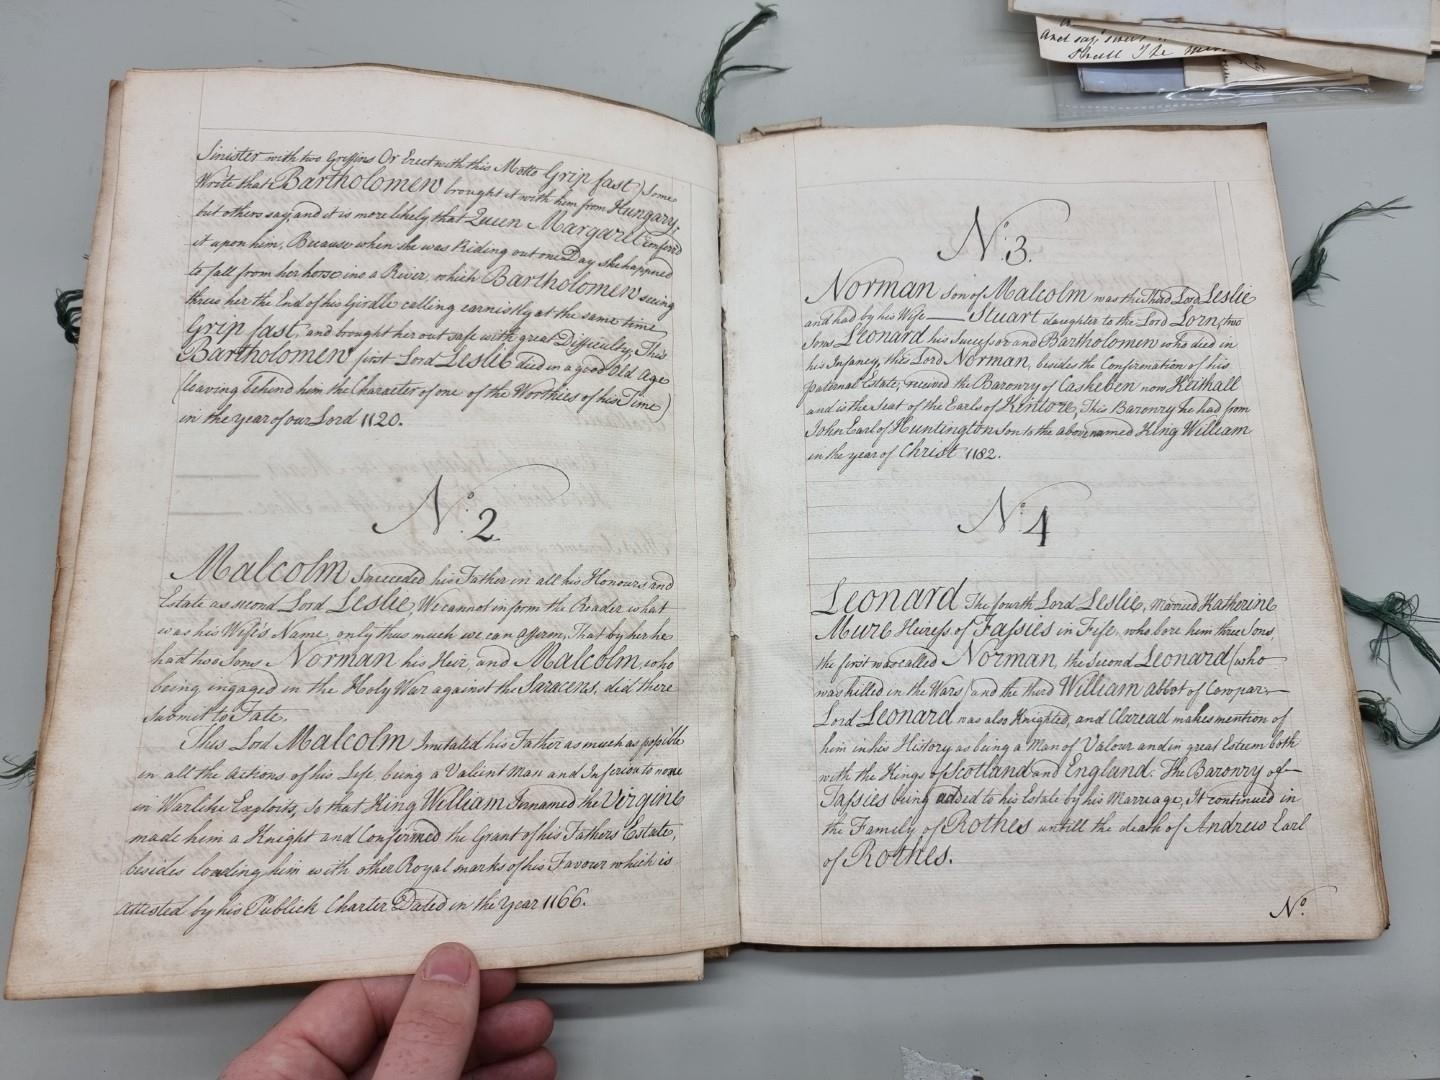 Sinister with two Griffins Or Erect with this Motto Grip fast (Some
Wrote that Bartholomew brought it with him from Hungary,
but others say, and it is more likely that Queen Margaret conferrd
it upon him, Because when she was Riding out one Day she happned
to fall from her horse into a River, which Bartholomew seeing
threw her the End of his Girdle calling earnistly at the same time
Grip fast, and brought her out safe with great Difficulty, This
Bartholomew first Lord Leslie died in a good Old Age
(leaving behind him the Character of one of the Worthies of his Time)
in the year of our Lord 1120.
No. 2
Malcolm Succeeded his Father in all his Honours and
Estate as second Lord Leslie We cannot inform the Reader what
was his Wife's Name, only thus much we can affirm, That by her he
had two Sons Norman his Heir, and Malcolm, who
being ingaged in the Holy War against the Saracens, did there
submit to Fate.
This Lord Malcolm Imitated his Father as much as possible
in all the Actions of his Life, being a Valient Man and Inferior to none
in Warlike Exploits, so that King William Sirnamed the Virgine
made him a Knight and Confirmed the Grant of his Fathers Estate,
besides loading him with other Royal marks of his Favour which is
attested by his Publick Charter Dated in the Year 1166.
No. 3.
Norman son of Malcolm was the Third Lord Leslie
and had by his Wife —— Stuart daughter to the Lord Lorn, two
Sons Leonard his Successor and Bartholomew who died in
his Infancy, this Lord Norman, besides the Confirmation of his
paternal Estate, received the Baronry of Casheben now Keithall
and is the seat of the Earls of Kintore, This Baronry he had from
John Earl of Huntington Son to the above named King William
in the year of Christ 1182.
No. 4
Leonard The fourth Lord Leslie, married Katherine
Mure Heiress of Tassies in Fife, who bore him three Sons,
the first was called Norman, the Second Leonard (who
was killed in the Wars) and the third William abbot of Cowpar,
Lord Leonard was also Knighted, and Claread makes mention of
him in his History as being a Man of Valour and in great Esteem both
with the Kings of Scotland and England. The Baronry of
Tassies being added to his Estate by his Marriage, It continued in
the Family of Rothes untill the death of Andrew Earl
of Rothes.
No.